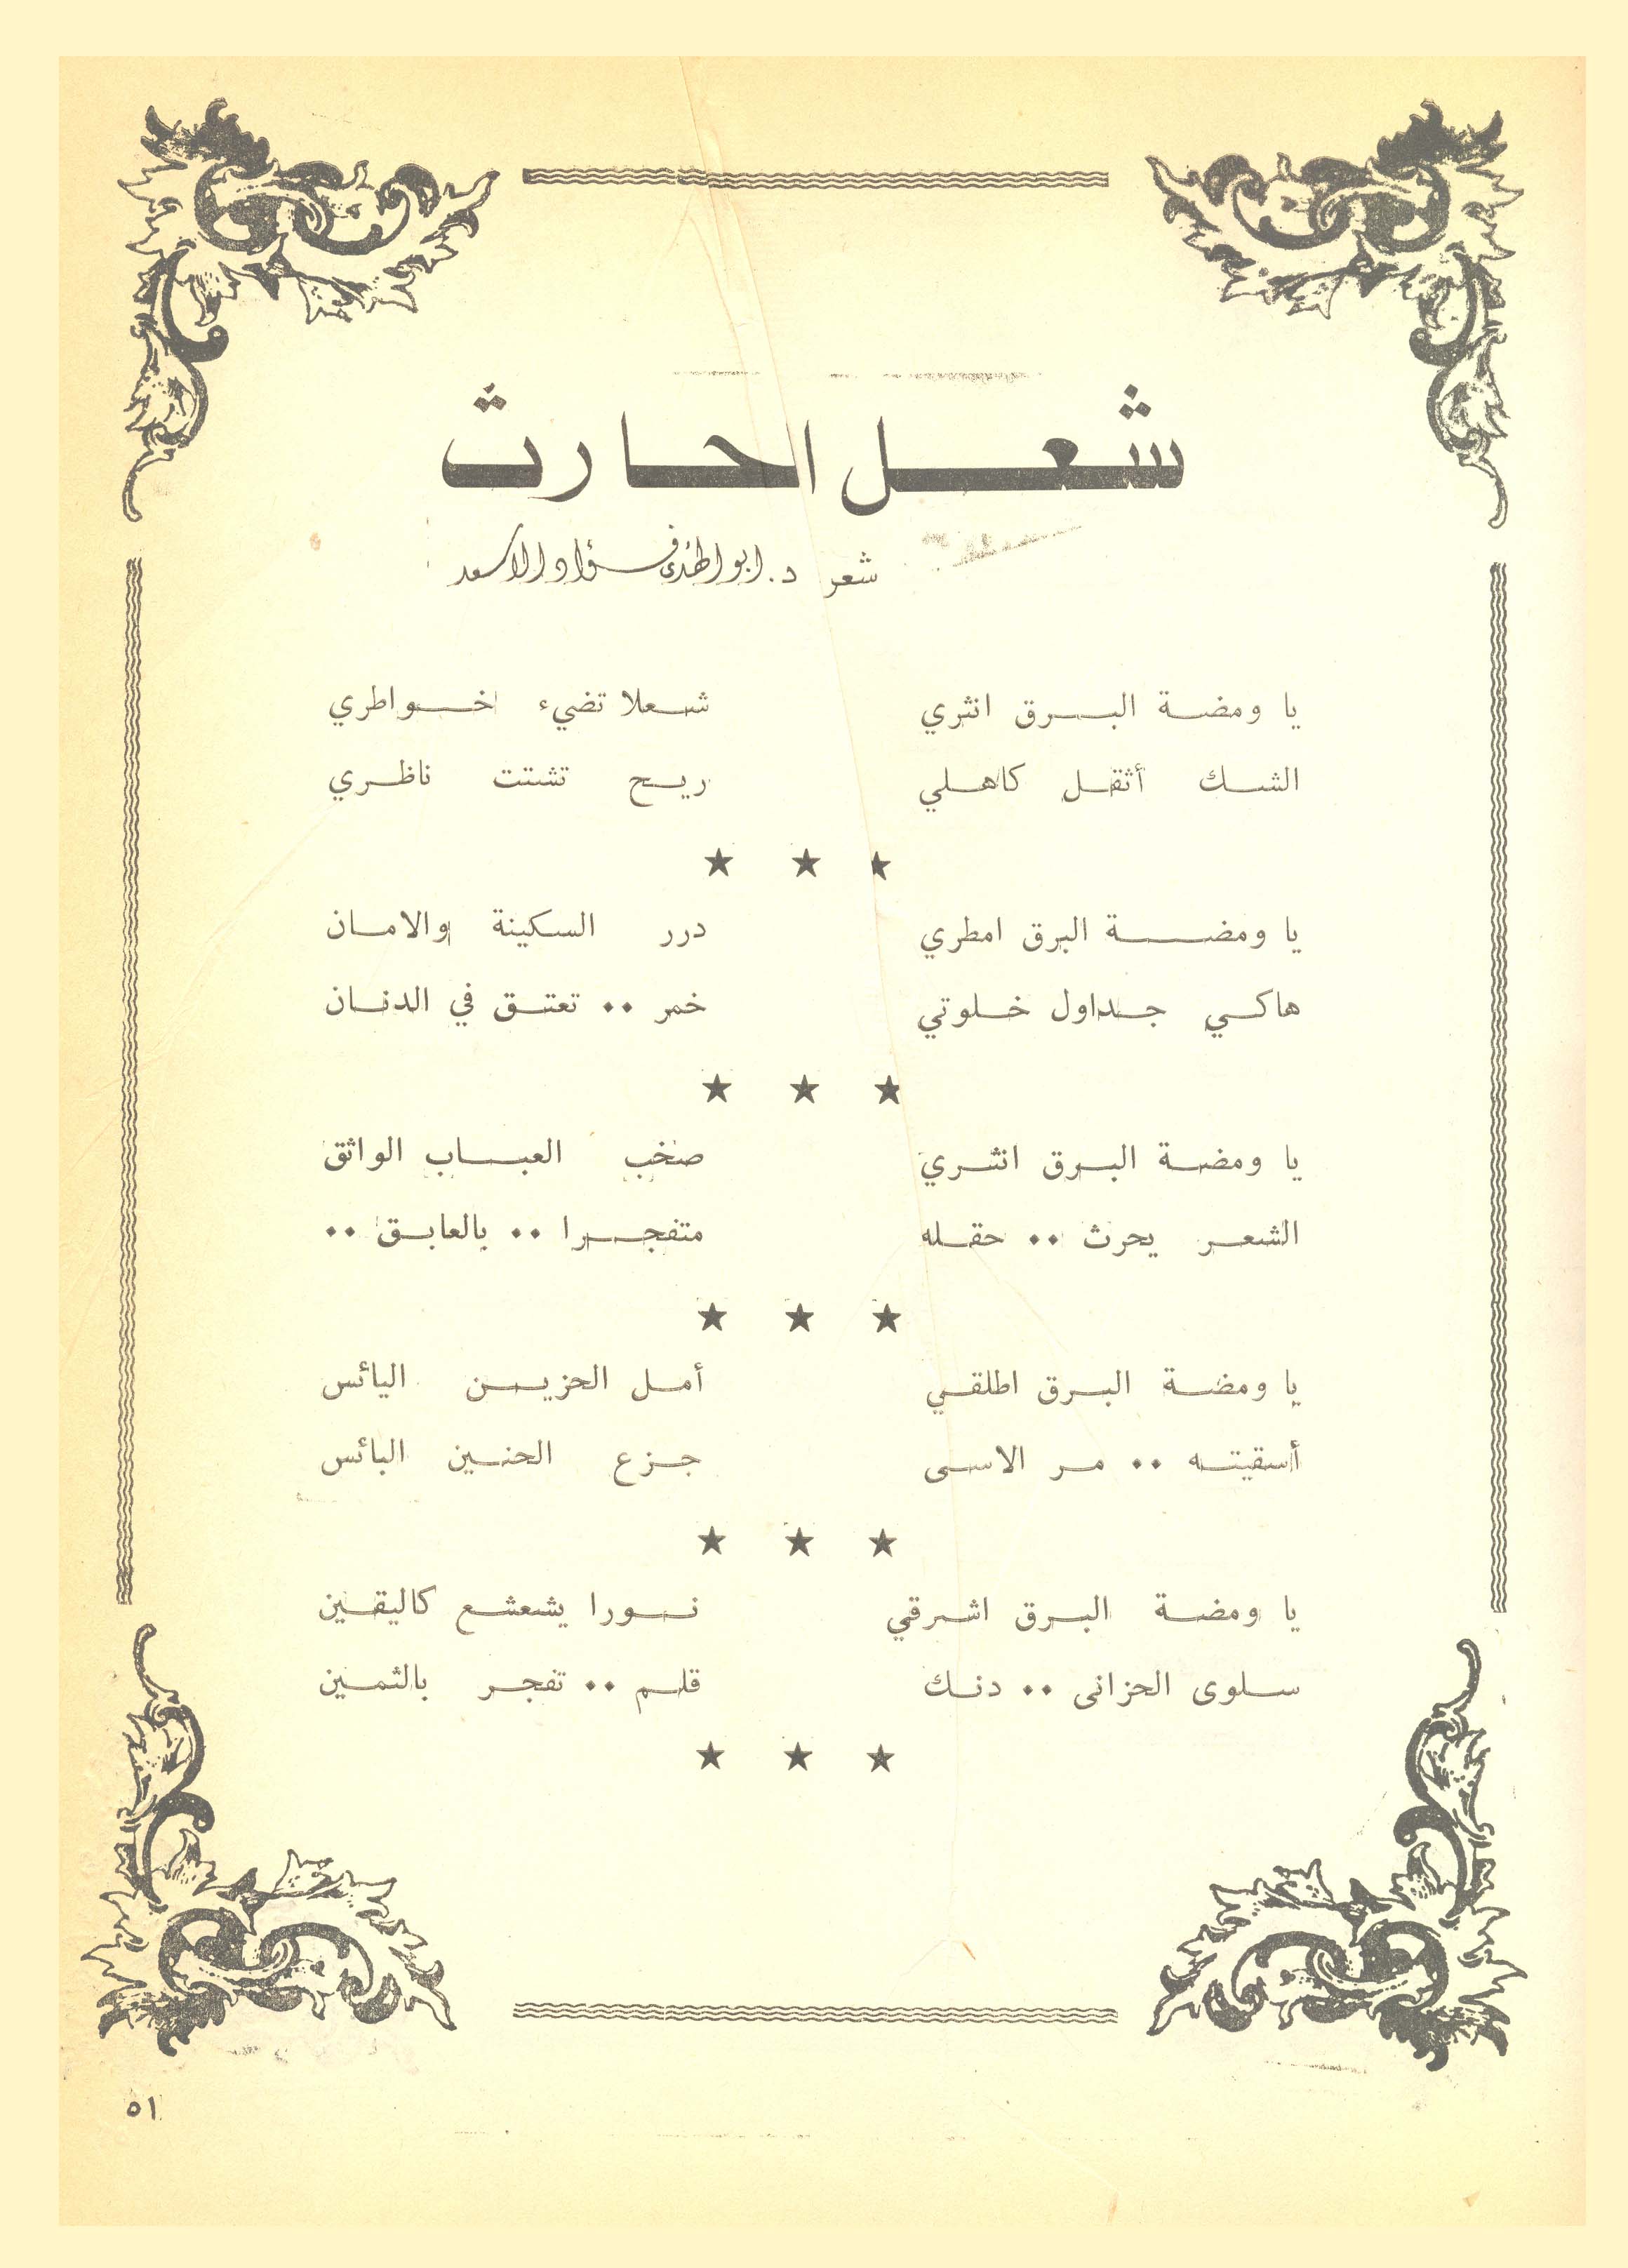 شعل الحارث
شعر د. ابو الهدى فؤاد الاسعد
يا ومضة البرق انثري شعلا تضيء خواطري
الشك أثقل كاهلي ريح تشتت ناظري
★ ★ ★
يا ومضة البرق امطري درر السكينة والامان
هاكي جداول خلوتي خمر .. تعتق في الدنان
★ ★ ★
يا ومضة البرق انثري صخب العباب الواثق
الشعر يحرث .. حقله متفجرا .. بالعابق ..
★ ★ ★
يا ومضة البرق اطلقي أمل الحزين اليائس
أسقيته .. مر الاسى جزع الحنين البائس
★ ★ ★
يا ومضة البرق اشرقي نورا يشعشع كاليقين
سلوى الحزانى .. دنك قلم .. تفجر بالثمين
★ ★ ★
٥١